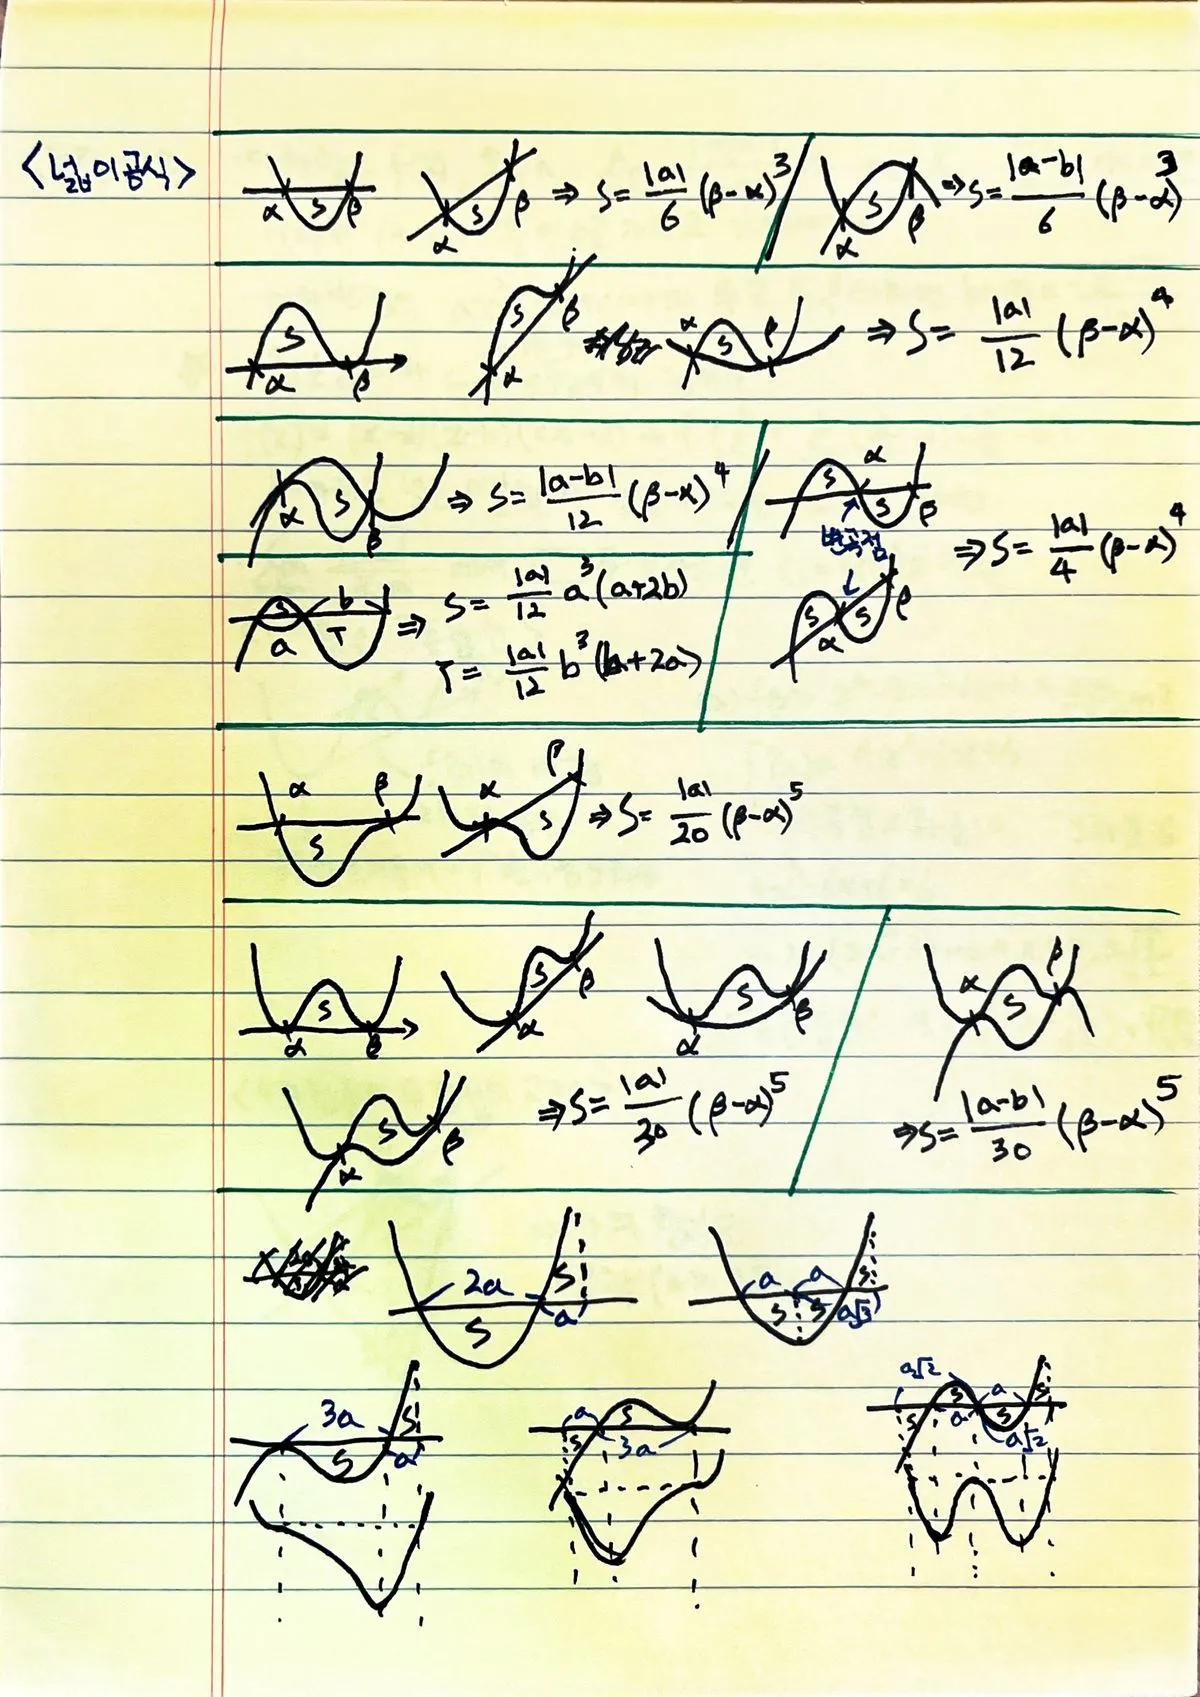 <넓이공식>
α S β α S β ⇒ S = |a|/6 (β-α)^3 / α S β ⇒ S = |a-b|/6 (β-α)^3
S α β S α β α S β ⇒ S = |a|/12 (β-α)^4
α S β ⇒ S = |a-b|/12 (β-α)^4
S α S β
변곡점
S α S β
⇒ S = |a|/4 (β-α)^4
S a b T ⇒ S = |a|/12 a^3 (a+2b)
T = |a|/12 b^3 (b+2a)
α β S α β S ⇒ S = |a|/20 (β-α)^5
α S β α S β α S β
α S β ⇒ S = |a|/30 (β-α)^5
α S β
⇒ S = |a-b|/30 (β-α)^5
2a S a S
a a S S S a√3
3a S S a
a S S 3a
a√2 S a a S S a√2